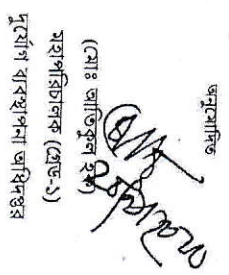 অনুমোদিত
(মোঃ আতিকুল হক)
মহাপরিচালক (গ্রেড-১)
দুর্যোগ ব্যবস্থাপনা অধিদপ্তর